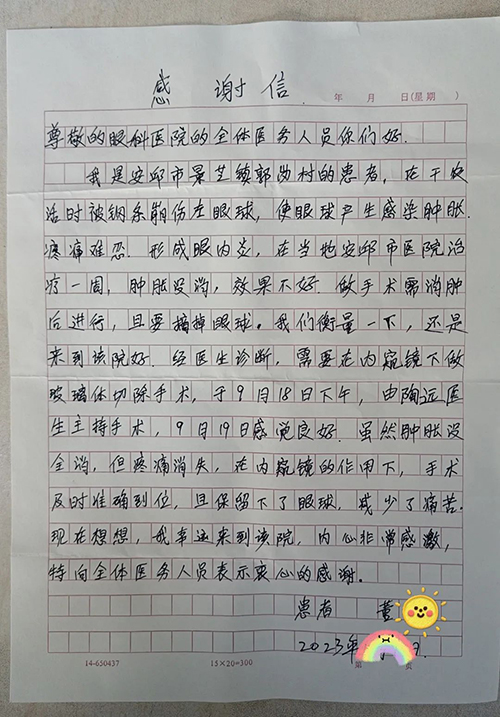 感谢信
年 月 日(星期 )
尊敬的眼科医院的全体医务人员你们好.
我是安邱市景芝镇郭岗村的患者, 在干农
活时被钢条崩伤左眼球, 使眼球产生感染肿胀.
疼痛难忍. 形成眼内炎, 在当地安邱市医院治
疗一周, 肿胀没消, 效果不好. 做手术需消肿
后进行, 且要摘掉眼球。我们衡量一下, 还是
来到该院好. 经医生诊断, 需要在内窥镜下做
玻璃体切除手术, 于9月18日下午, 由陶远医
生主持手术, 9月19日感觉良好. 虽然肿胀没
全消, 但疼痛消失, 在内窥镜的作用下, 手术
及时准确到位, 且保留下了眼球, 减少了痛苦.
现在想想, 我幸运来到该院, 内心非常感激,
特向全体医务人员表示衷心的感谢。
患者 董
2023年
14-650437 15×20=300 第 页